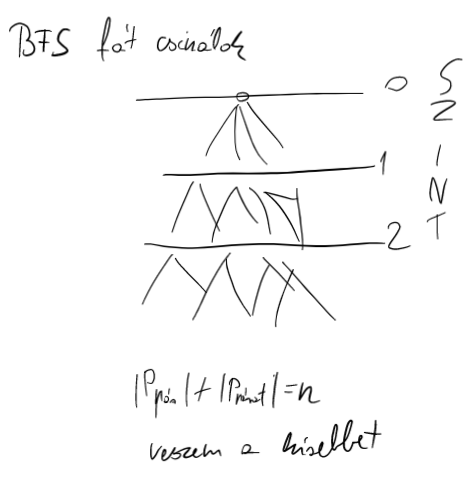 BFS fát csinálok
0
1
2
SZINT
|P_{páros}| + |P_{páratlan}| = n
veszem a kisebbet